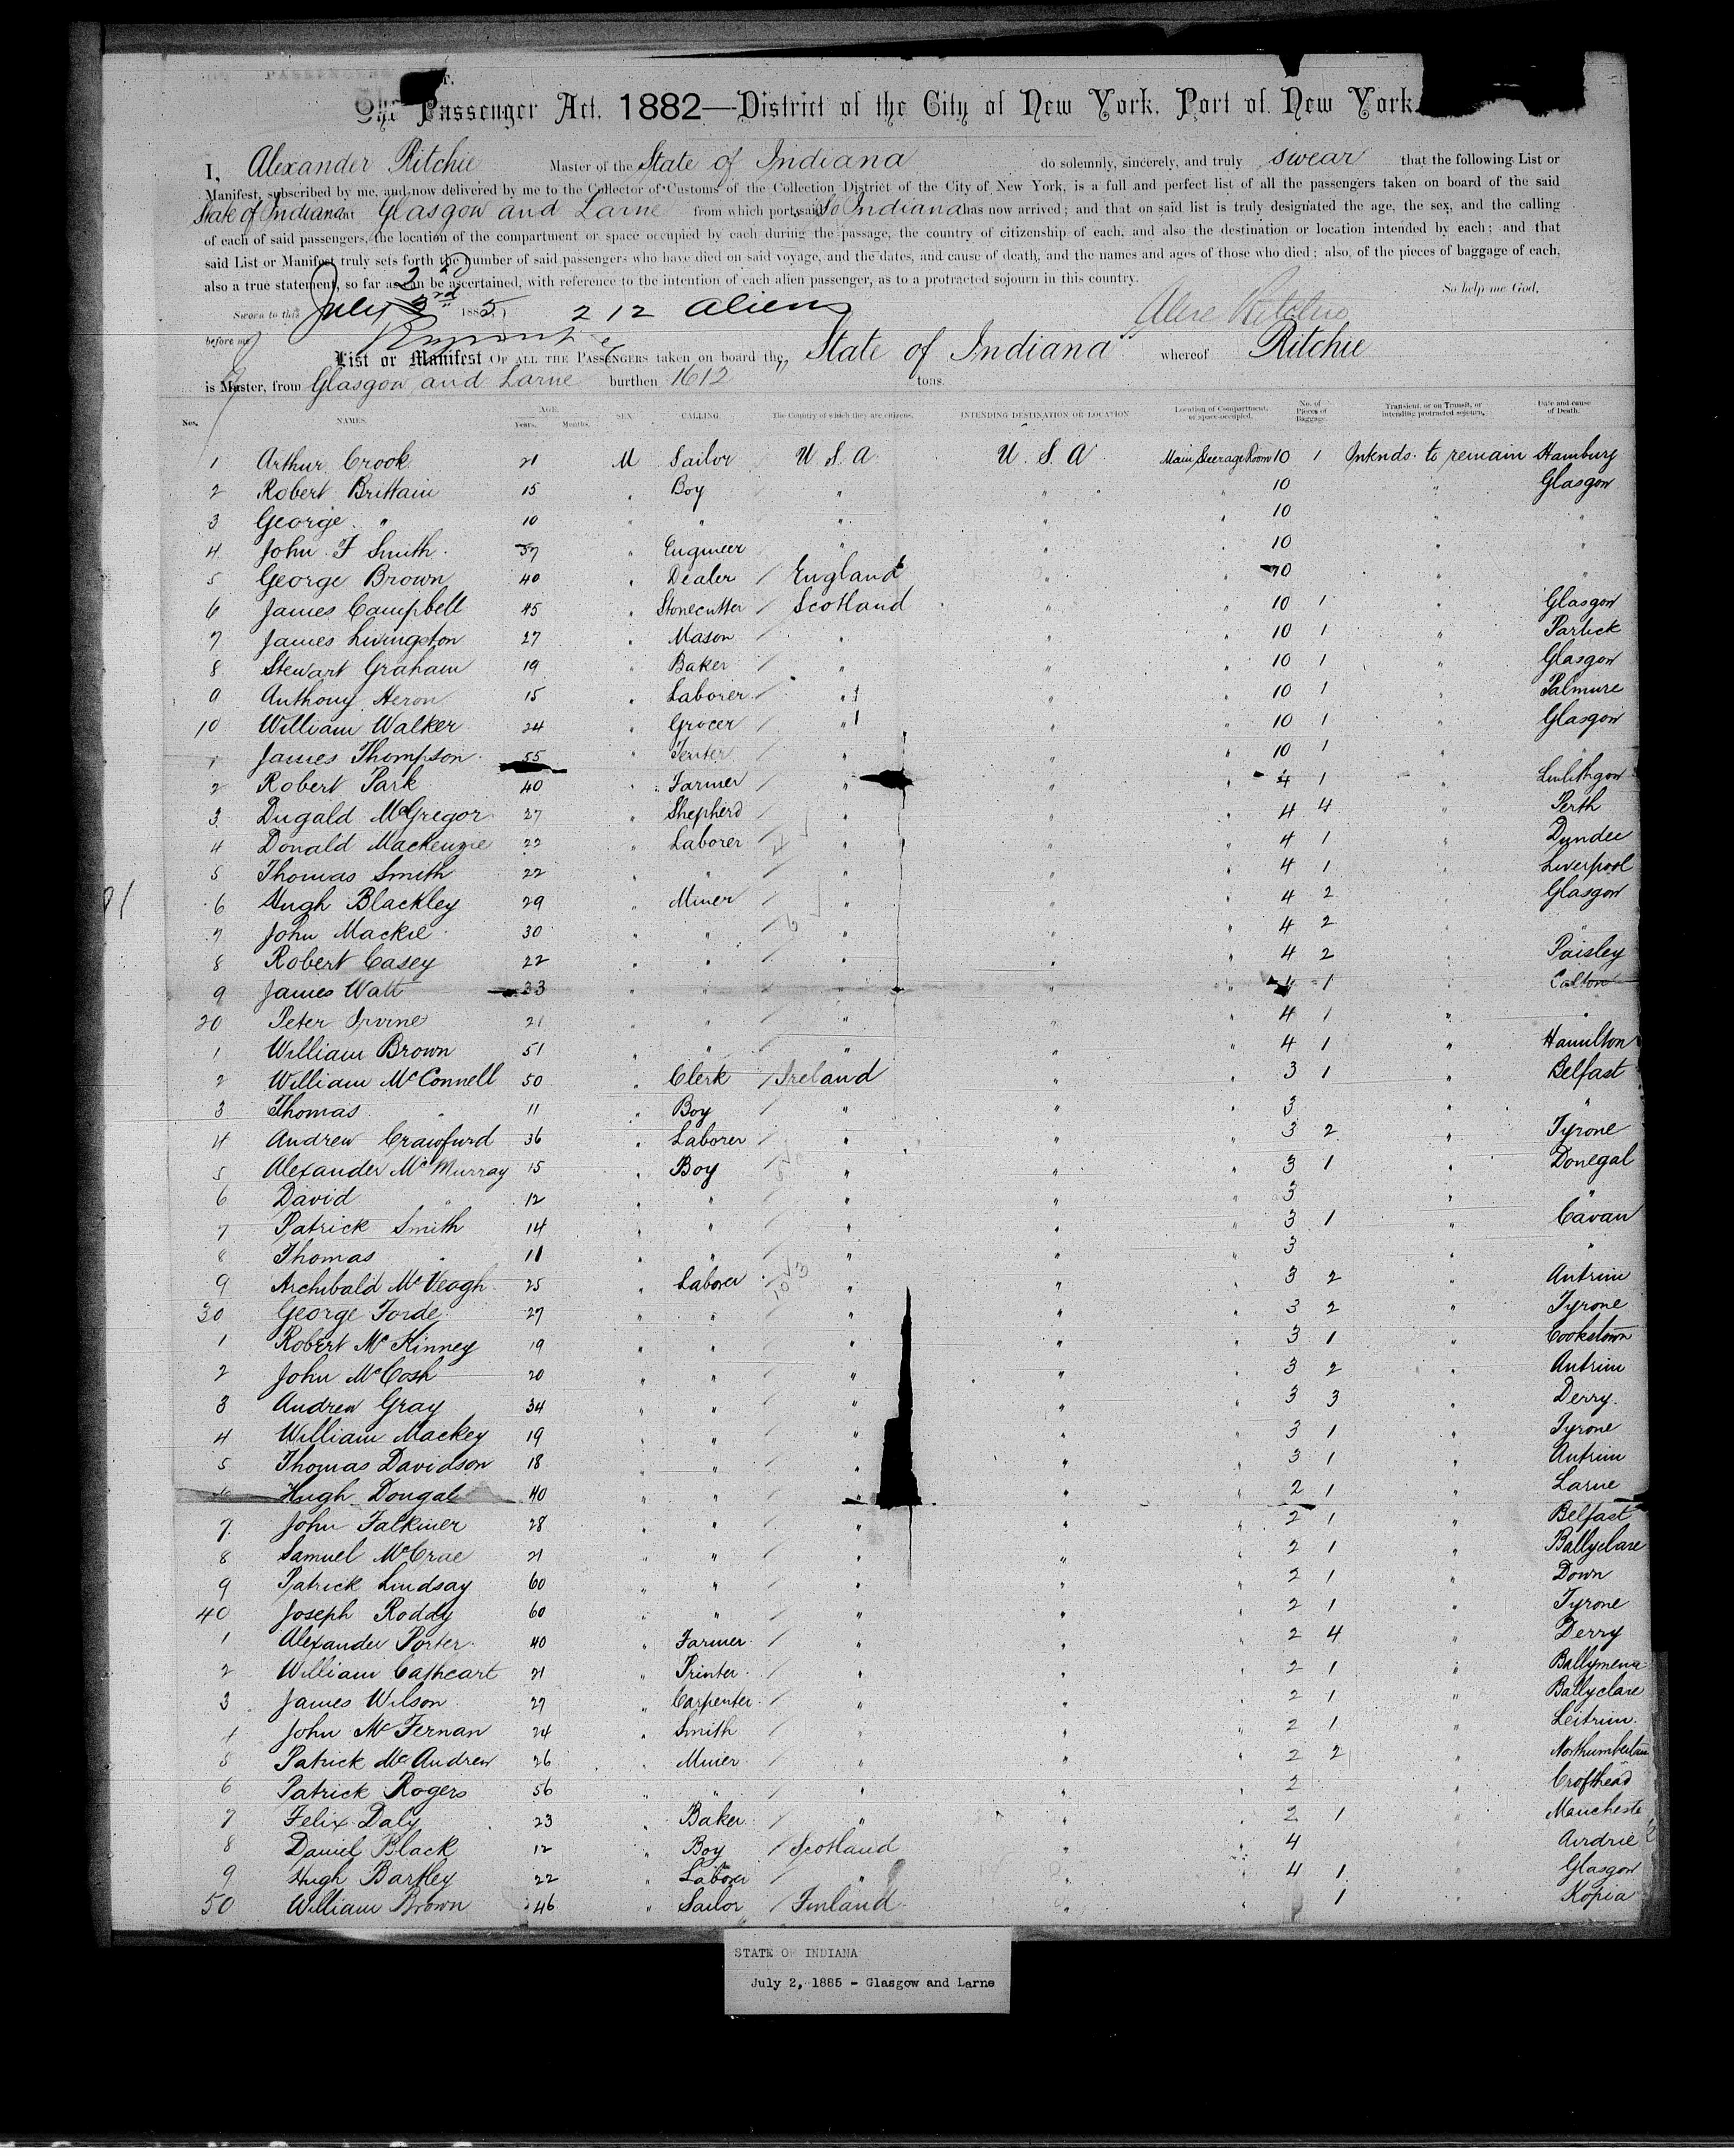 The Passenger Act, 1882—District of the City of New York, Port of New York.
I, Alexander Ritchie Master of the State of Indiana do solemnly, sincerely, and truly swear that the following List or
Manifest, subscribed by me, and now delivered by me to the Collector of Customs of the Collection District of the City of New York, is a full and perfect list of all the passengers taken on board of the said
State of Indiana at Glasgow and Larne from which port, said So Indiana has now arrived; and that on said list is truly designated the age, the sex, and the calling
of each of said passengers, the location of the compartment or space occupied by each during the passage, the country of citizenship of each, and also the destination or location intended by each; and that
said List or Manifest truly sets forth the number of said passengers who have died on said voyage, and the dates, and cause of death, and the names and ages of those who died; also, of the pieces of baggage of each,
also a true statement, so far as can be ascertained, with reference to the intention of each alien passenger, as to a protracted sojourn in this country.
So help me God,
Sworn to this July 2nd 3rd 1885, 212 aliens Alexr Ritchie
before me
List or Manifest OF ALL THE PASSENGERS taken on board the "State of Indiana" whereof Ritchie
is Master, from Glasgow and Larne burthen 1612 tons.
Nos. NAMES. AGE. Years. Months. SEX. CALLING. The Country of which they are citizens. INTENDING DESTINATION OR LOCATION Location of Compartment, or space occupied. No. of Pieces of Baggage. Transient, or on Transit, or intending protracted sojourn. Date and cause of Death.
1 Arthur Crook 21 M Sailor U.S.A. U.S.A Main Steerage Room 10 1 Intends to remain Hamburg
2 Robert Brittain 15 " Boy " " " 10 " Glasgow
3 George " 10 " " " " " 10 " "
4 John F Smith 37 " Engineer " " " 10 " "
5 George Brown 40 " Dealer England " " 10 " "
6 James Campbell 45 " Stonecutter Scotland " " 10 1 " Glasgow
7 James Livingston 27 " Mason " " " 10 1 " Partick
8 Stewart Graham 19 " Baker " " " 10 1 " Glasgow
9 Anthony Heron 15 " Laborer " " " 10 1 " Palmure
10 William Walker 24 " Grocer " " " 10 1 " Glasgow
1 James Thompson 55 " Tenter " " " 10 1 "
2 Robert Park 40 " Farmer " " " 4 1 " Linlithgow
3 Dugald McGregor 27 " Shepherd " " " 4 4 " Perth
4 Donald Mackenzie 22 " Laborer " " " 4 1 " Dundee
5 Thomas Smith 22 " " " " " 4 1 " Liverpool
6 Hugh Blackley 29 " Miner " " " 4 2 " Glasgow
7 John Mackie 30 " " " " " 4 2 " "
8 Robert Casey 22 " " " " " 4 2 " Paisley
9 James Watt 33 " " " " " 4 1 " Calton
20 Peter Irvine 21 " " " " " 4 1 " "
1 William Brown 51 " " " " " 4 1 " Hamilton
2 William McConnell 50 " Clerk Ireland " " 3 1 " Belfast
3 Thomas " 11 " Boy " " " 3 " "
4 Andrew Crawfurd 36 " Laborer " " " 3 2 " Tyrone
5 Alexander McMurray 15 " Boy " " " 3 1 " Donegal
6 David " 12 " " " " " 3 " "
7 Patrick Smith 14 " " " " " 3 1 " Cavan
8 Thomas " 11 " " " " " 3 " "
9 Archibald McVeagh 25 " Laborer " " " 3 2 " Antrim
30 George Forde 27 " " " " " 3 2 " Tyrone
1 Robert McKinney 19 " " " " " 3 1 " Cookstown
2 John McCosh 20 " " " " " 3 2 " Antrim
3 Andrew Gray 34 " " " " " 3 3 " Derry.
4 William Mackey 19 " " " " " 3 1 " Tyrone
5 Thomas Davidson 18 " " " " " 3 1 " Antrim
6 Hugh Dougal 40 " " " " " 2 1 " Larne
7 John Falkiner 28 " " " " " 2 1 " Belfast
8 Samuel McCrae 21 " " " " " 2 1 " Ballyclare
9 Patrick Lindsay 60 " " " " " 2 1 " Down
40 Joseph Roddy 60 " " " " " 2 1 " Tyrone
1 Alexander Porter 40 " Farmer " " " 2 4 " Derry
2 William Cathcart 21 " Printer " " " 2 1 " Ballymena
3 James Wilson 27 " Carpenter " " " 2 1 " Ballyclare
4 John McFernan 24 " Smith " " " 2 1 " Leitrim.
5 Patrick McAndrew 26 " Miner " " " 2 2 " Northumberland
6 Patrick Rogers 56 " " " " " 2 " Crofthead
7 Felix Daly 23 " Baker " " " 2 1 " Mancheste
8 Daniel Black 12 " Boy Scotland " " 4 " Airdrie
9 Hugh Barkley 22 " Laborer " " " 4 1 " Glasgow
50 William Brown 46 " Sailor Finland " 1 " Kopia
STATE OF INDIANA
July 2, 1885 - Glasgow and Larne